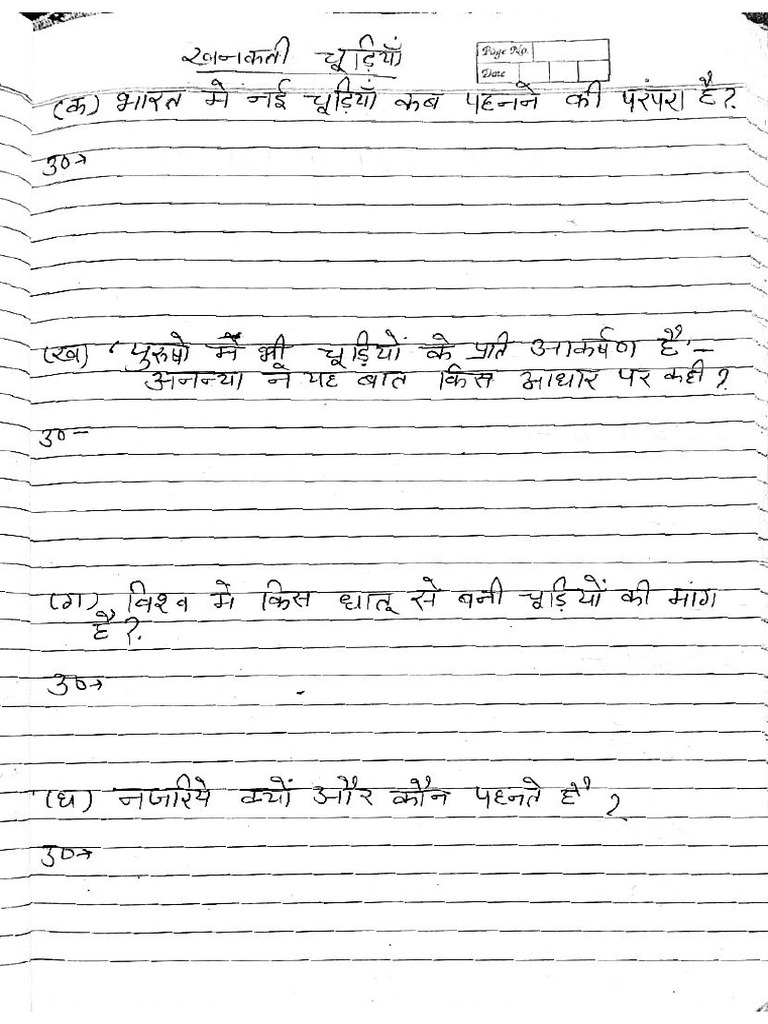 खनकती चूड़ियाँ
Page No.
Date
(क) भारत मे नई चूड़ियाँ कब पहनने की परंपरा है?
उ०→
(ख) ‘पुरुषो में भी चूड़ियों के प्रति आकर्षण है’–
अनन्या ने यह बात किस आधार पर कही?
उ०–
(ग) विश्व मे किस धातू से बनी चूड़ियों की मांग
है?
उ०→
(घ) नजरिये क्यों और कौन पहनते है?
उ०→